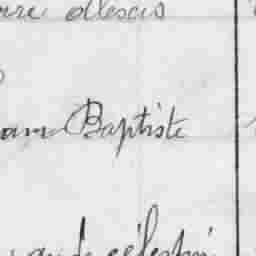 ire Alexis
ean Baptiste
célestin